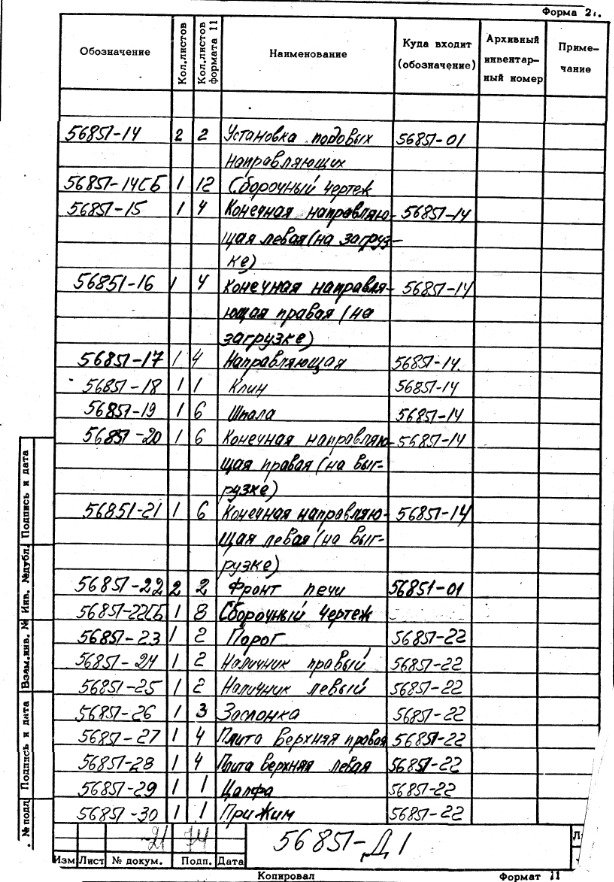 Форма 2
Обозначение Кол.листов Кол.листов формата 11 Наименование Куда входит (обозначение) Архивный инвентар- ный номер Приме- чание
56851-14 2 2 Установка подовых 56851-01
направляющих
56851-14СБ 1 12 Сборочный чертеж
56851-15 1 4 Конечная направляю- 56851-14
щая левая (на загруз-
ке)
56851-16 1 4 Конечная направля- 56851-14
ющая правая (на
загрузке)
56851-17 1 4 Направляющая 56851-14
56851-18 1 1 Клин 56851-14
56851-19 1 6 Шпала 56851-14
56851-20 1 6 Конечная направляю- 56851-14
щая правая (на выг-
рузке)
56851-21 1 6 Конечная направляю- 56851-14
щая левая (на выг-
рузке)
56851-22 2 2 Фронт печи 56851-01
56851-22СБ 1 8 Сборочный чертеж
56851-23 1 2 Порог 56851-22
56851-24 1 2 Наличник правый 56851-22
56851-25 1 2 Наличник левый 56851-22
56851-26 1 3 Заслонка 56851-22
56851-27 1 4 Плита верхняя правая 56851-22
56851-28 1 4 Плита верхняя левая 56851-22
56851-29 1 1 Цапфа 56851-22
56851-30 1 1 Прижим 56851-22
56851-Д1
Изм Лист № докум. Подп. Дата
Копировал Формат 11
№ подл Подпись и дата Взам.инв. № Инв. №дубл. Подпись и дата